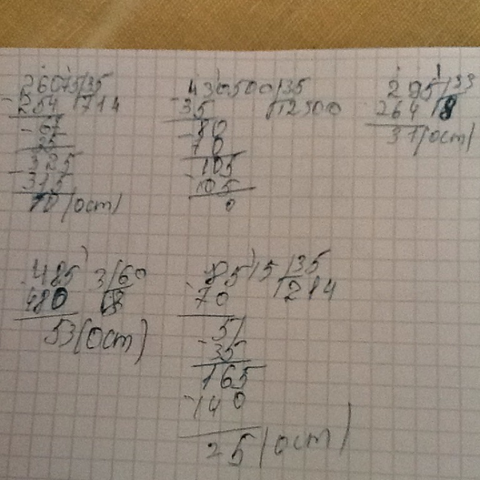 26075/35
-254 714
-67
35
325
-315
10 (ост)
430500/35
-35 12300
-80
70
-105
105
0
295/33
264 8
31(ост)
485 3/60
480 8
53(ост)
8515/35
-70 1214
51
-35
165
-140
25(ост)